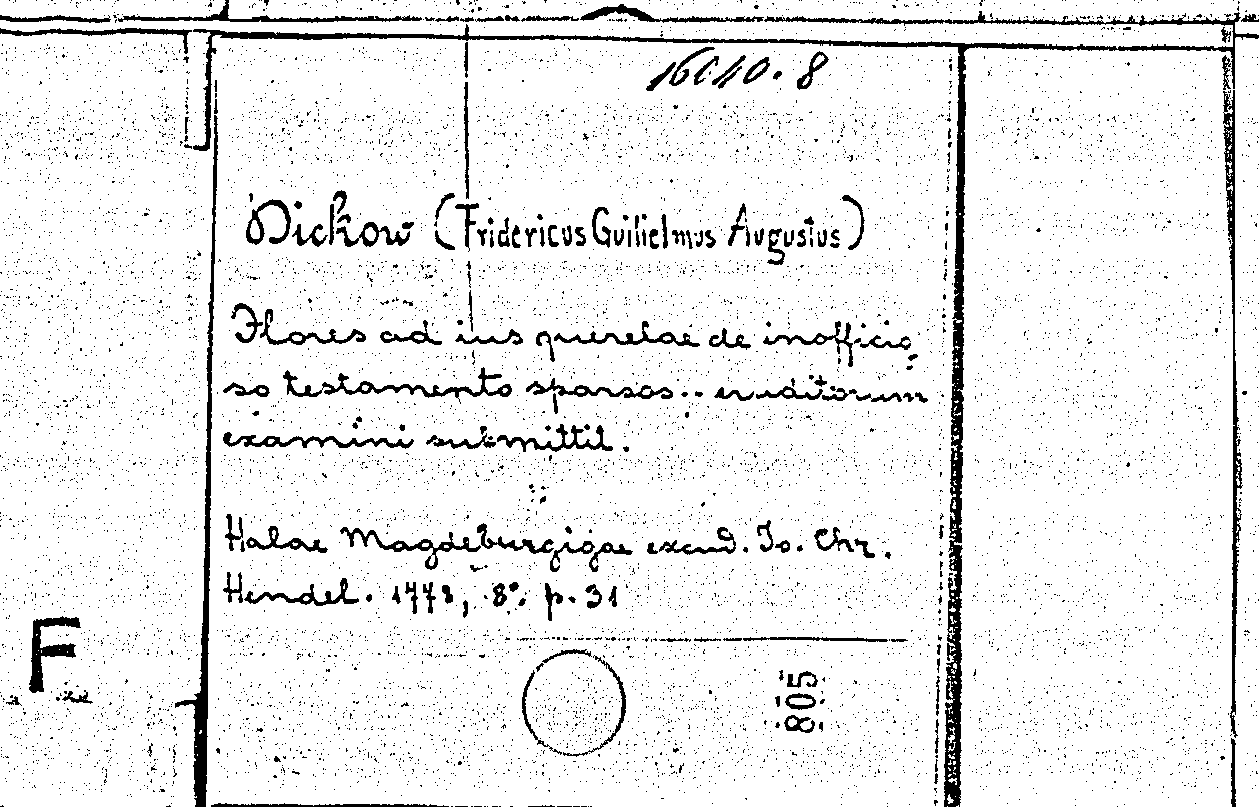 16040.8
Dickow (Fridericus Guilielmus Augustus)
Flores ad ius querelae de inofficio
so testamento sparsos .. eruditorum
examini submittit.
Halae Magdeburgigae excud. Io. Chr.
Hendel. 1778, 8°. p. 31
F
805